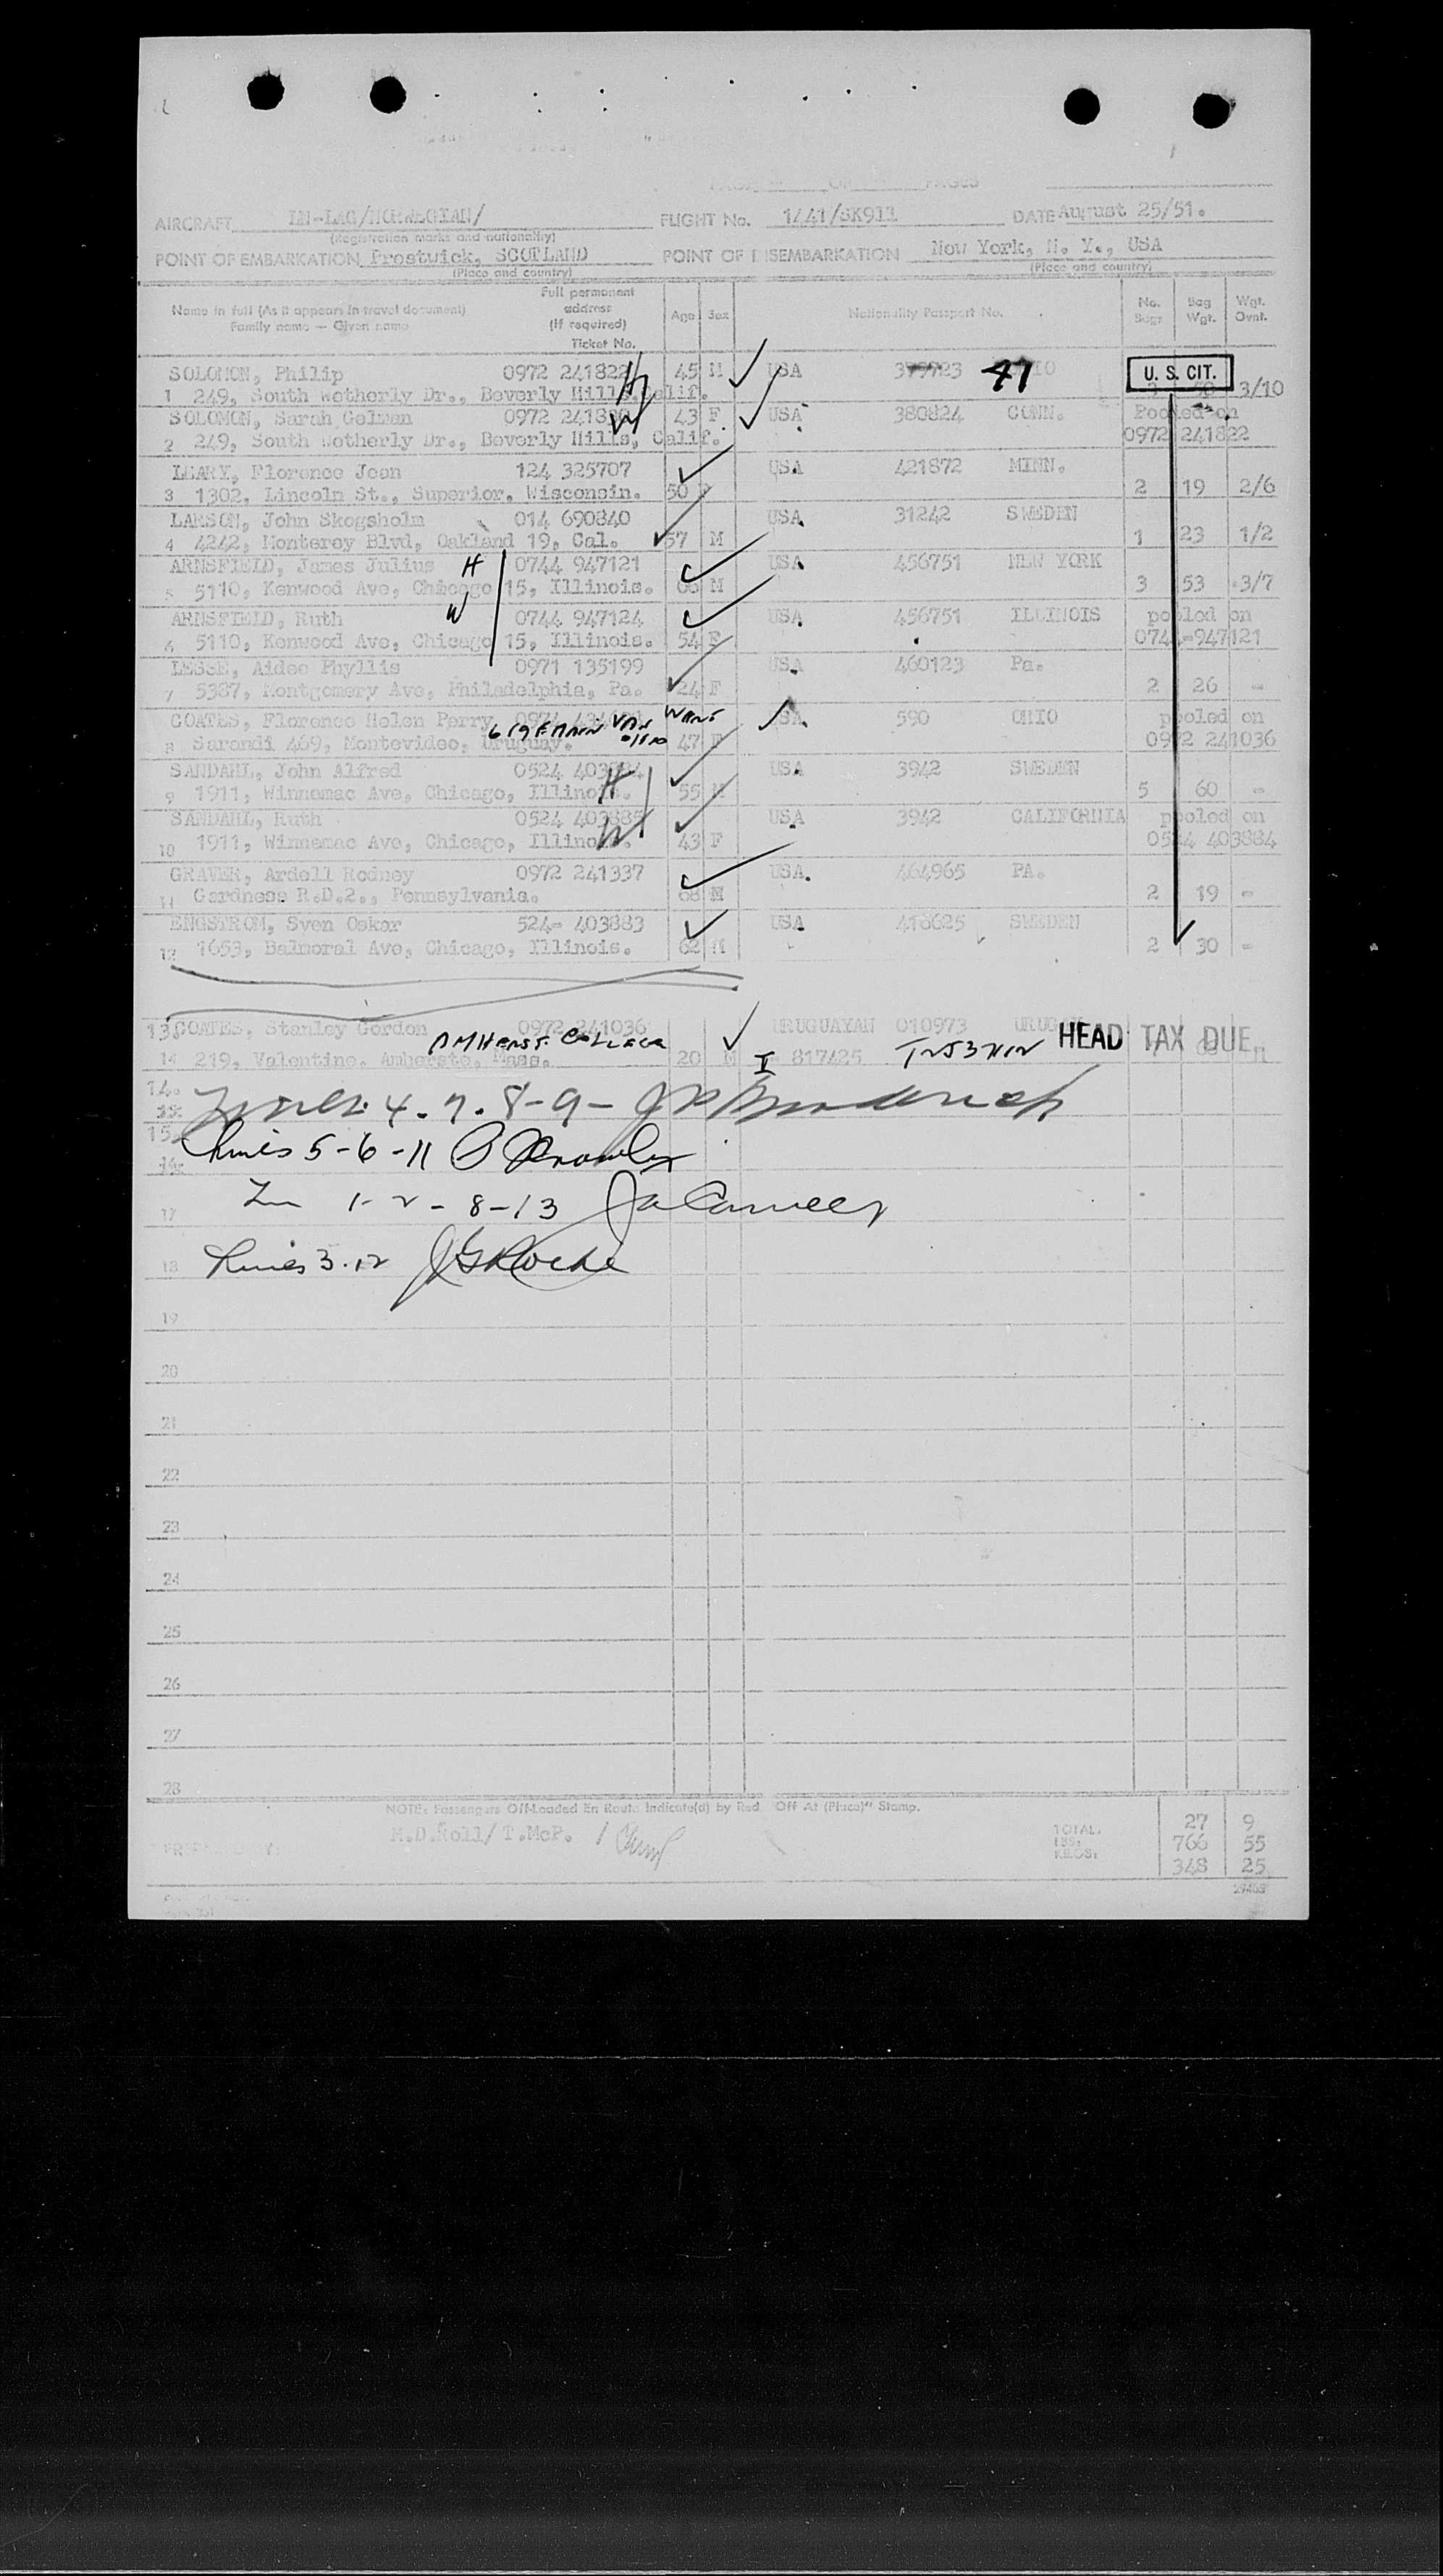 PAGES
AIRCRAFT LN-LAG/NORWEGIAN/ FLIGHT No. 1441/SK911 DATE August 25/51.
(Registration marks and nationality)
POINT OF EMBARKATION Prestwick, SCOTLAND POINT OF DISEMBARKATION New York, N. Y., USA
(Place and country) (Place and country)
Name in full (As it appears in travel document) Family name — Given name Full permanent address (If required) Ticket No. Age Sex Nationality Passport No. No. Bags Bag Wgt. Wgt. Ovnt.
SOLOMON, Philip 0972 241822 H 45 M USA 41 U. S. CIT.
1 249, South Wetherly Dr., Beverly Hills, Calif. 3/10
SOLOMON, Sarah Gelman W 43 F USA 380824 CONN. Pooled on
2 249, South Wetherly Dr., Beverly Hills, Calif. 0972 241822
LEARY, Florence Jean 124 325707 USA 421872 MINN.
3 1302, Lincoln St., Superior, Wisconsin. 50 2 19 2/6
LARSON, John Skogsholm 014 690840 USA 31242 SWEDEN
4 4242, Monterey Blvd, Oakland 19, Cal. 57 M 1 23 1/2
ARNSFIELD, James Julius H 0744 947121 USA 456751 NEW YORK
5 5110, Kenwood Ave, Chicago 15, Illinois. M 3 53 3/7
ARNSFIELD, Ruth W 0744 947124 USA 456751 ILLINOIS pooled on
6 5110, Kenwood Ave, Chicago 15, Illinois. 54 F 0744-947121
LESSE, Aidee Phyllis 0971 135199 USA 460123 Pa.
7 5387, Montgomery Ave, Philadelphia, Pa. 24 F 2 26 -
COATES, Florence Helen Perry USA 590 OHIO pooled on
619 E MAIN VAN WERT OHIO
8 Sarandi 469, Montevideo, Uruguay. 47 F 0972 241036
SANDAHL, John Alfred 0524 403884 USA 3942 SWEDEN
9 1911, Winnemac Ave, Chicago, Illinois. H 55 M 5 60 -
SANDAHL, Ruth 0524 403885 USA 3942 CALIFORNIA pooled on
10 1911, Winnemac Ave, Chicago, Illinois. W 43 F 0524 403884
GRAVER, Ardell Rodney 0972 241337 USA. 464965 PA.
11 Gardness R.D.2., Pennsylvania. 68 M 2 19 -
ENGSTROM, Sven Oskar 524- 403883 USA 418625 SWEDEN
12 1653, Balmoral Ave, Chicago, Illinois. 62 M 2 30 -
13 COATES, Stanley Gordon 0972 241036 URUGUAYAN 010973 HEAD TAX DUE
AMHERST COLLEGE
14 219, Valentine, Amherst, Mass. 20 M I 817425
14.
Lines 4. 7. 8-9-
15.
Lines 5-6-11
17 1-2-8-13
18 Lines 3.12
19
20
21
22
23
24
25
26
27
28
NOTE: Passengers Off-Loaded En Route Indicate(d) by Red Off At (Place)" Stamp.
M.D.Roll/ T.McP. /
TOTAL. 27 9
LBS: 766 55
KILOS: 348 25